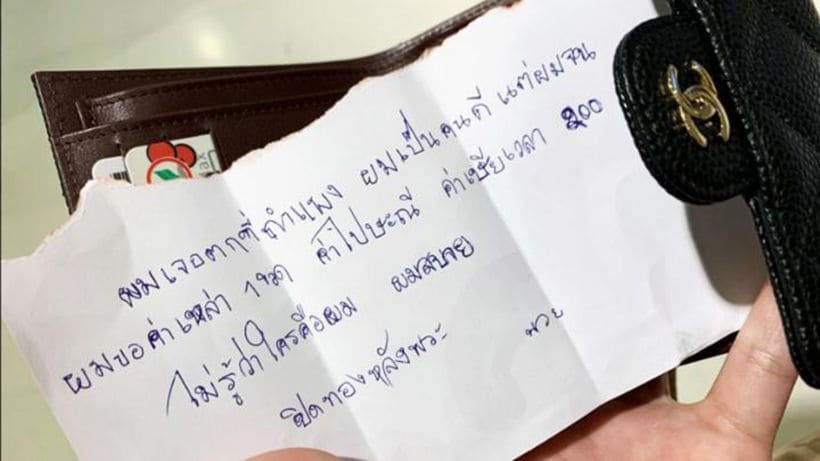 ผมเจอตกที่กำแพง ผมเป็นคนดี แต่ผมจน
ผมขอค่าเหล้า 1 ขวด ค่าไปษะณี ค่าเสียเวลา 200
ไม่รู้ว่าใครคือผม ผมสบาย
ปิดทองหลังพระ